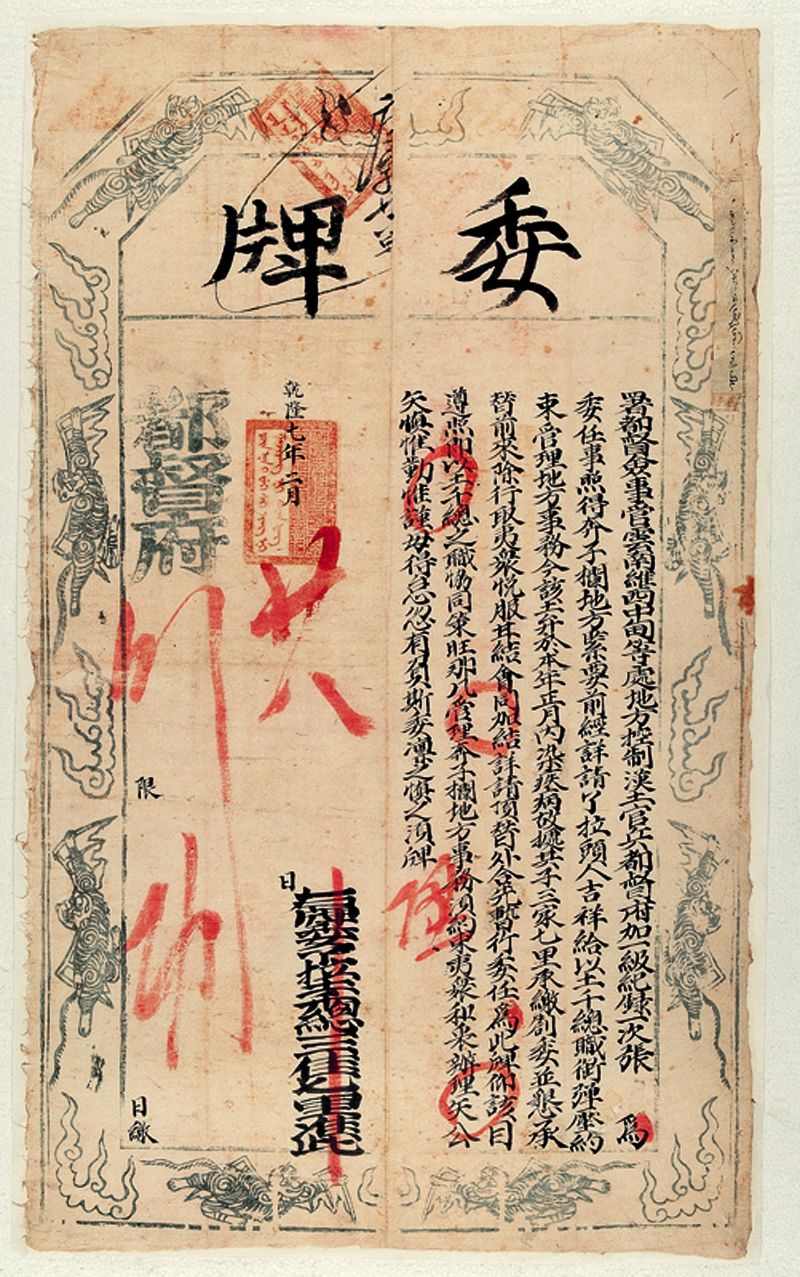 委牌
署都督僉事管雲南維西中甸等處地方控制漢土官兵都督府加一級紀録一次張 爲
委任事照得奔子欄地方緊要前經詳請了拉頭人吉祥給以土千總職銜彈壓約
束管理地方事務今該土弁於本年正月內染疾病故據其子三家七里承繳劄委並懇承
替前來除行取夷衆悅服甘結會同加結詳請頂替外合先暫行委任爲此牌仰該目
遵照仰以土千總之職協同策旺那九管理奔子欄地方事務須約束夷衆和衷辦理矢公
矢慎惟勤惟謹毋得怠忽有負斯委凜之慎之須牌
右牌委土千總三家七里准此
乾隆七年二月廿八日
都督府
限 日繳